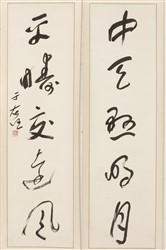 中天懸明月
平疇交遠風
于右任